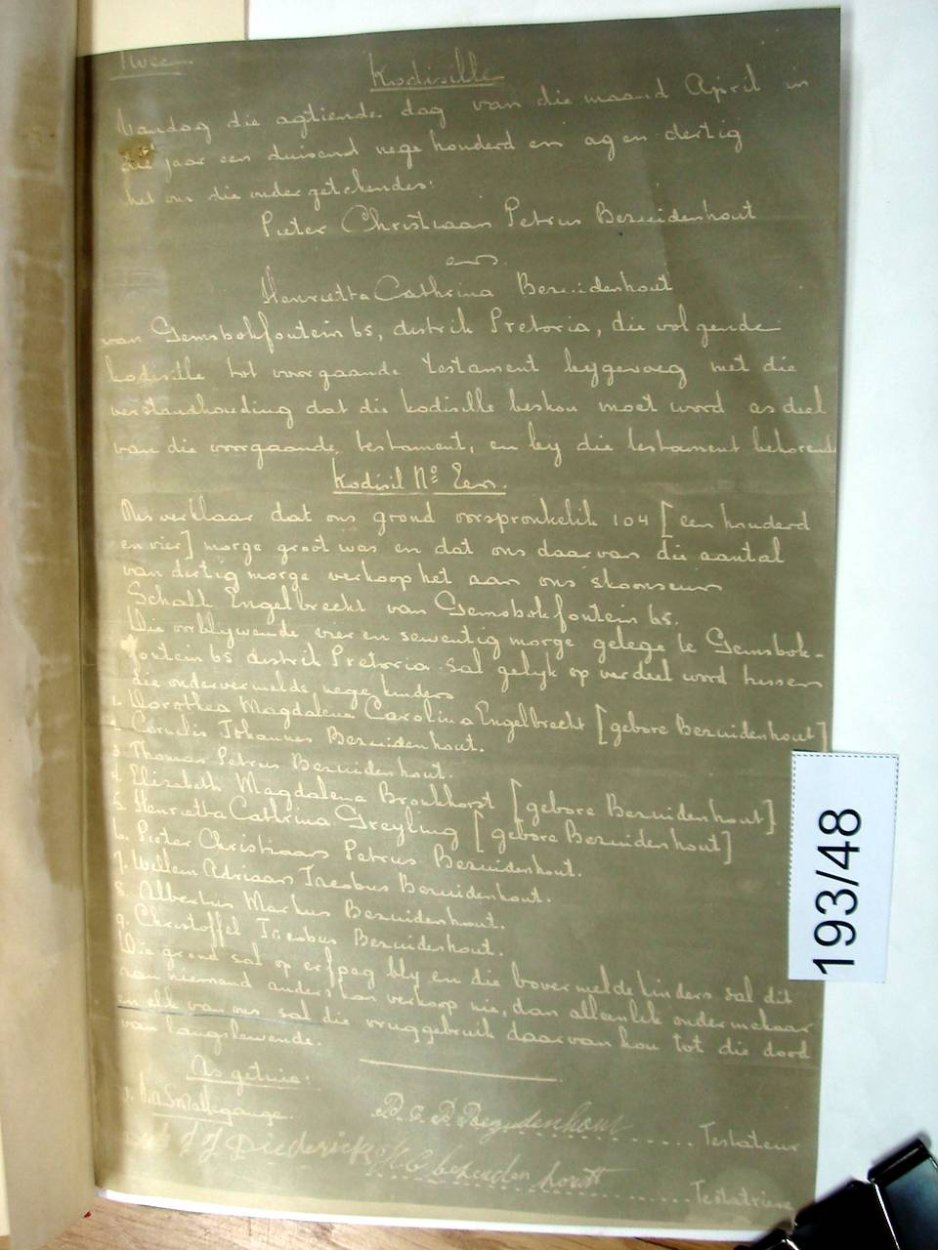 Twee
Kodisille
Vandag die agtiende dag van die maand April in
die jaar een duisend nege honderd en ag en dertig
het ons die ondergetekendes:
Pieter Christiaan Petrus Bezuidenhout
en
Henrietta Cathrina Bezuidenhout
van Gemsbokfontein 65, distrik Pretoria, die volgende
kodisille tot voorgaande testament bygevoeg met die
verstandhouding dat die kodisille beskou moet word as deel
van die voorgaande testament, en by die testament behorend
Kodisil No Een.
Ons verklaar dat ons grond oorspronkelik 104 [een honderd
en vier] morge groot was en dat ons daarvan die aantal
van dertig morge verkoop het aan ons skoonseun
Schalk Engelbrecht van Gemsbokfontein 65.
Die oorblywende vier en sewentig morge gelege te Gemsbok-
fontein 65 distrik Pretoria sal gelyk op verdeel word tussen
die ondervermelde nege kinders
1. Dorothea Magdalena Carolina Engelbrecht [gebore Bezuidenhout]
2. Cornelis Johannes Bezuidenhout.
3. Thomas Petrus Bezuidenhout.
4. Elizabeth Magdalena Bronkhorst [gebore Bezuidenhout]
5. Henrietta Cathrina Greyling [gebore Bezuidenhout]
6. Pieter Christiaan Petrus Bezuidenhout.
7. Willem Adriaan Jacobus Bezuidenhout.
8. Albertus Markus Bezuidenhout.
9. Christoffel Jacobus Bezuidenhout.
Die grond sal op erfpag bly en die bovermelde kinders sal dit
aan niemand anders kan verkoop nie, dan alleenlik onder mekaar
en elk van ons sal die vruggebruik daarvan hou tot die dood
van langslewende.
As getuie:
P. C. P. Bezuidenhout Testateur
J J Diederick H C bezuidenhout Testatriese
193/48